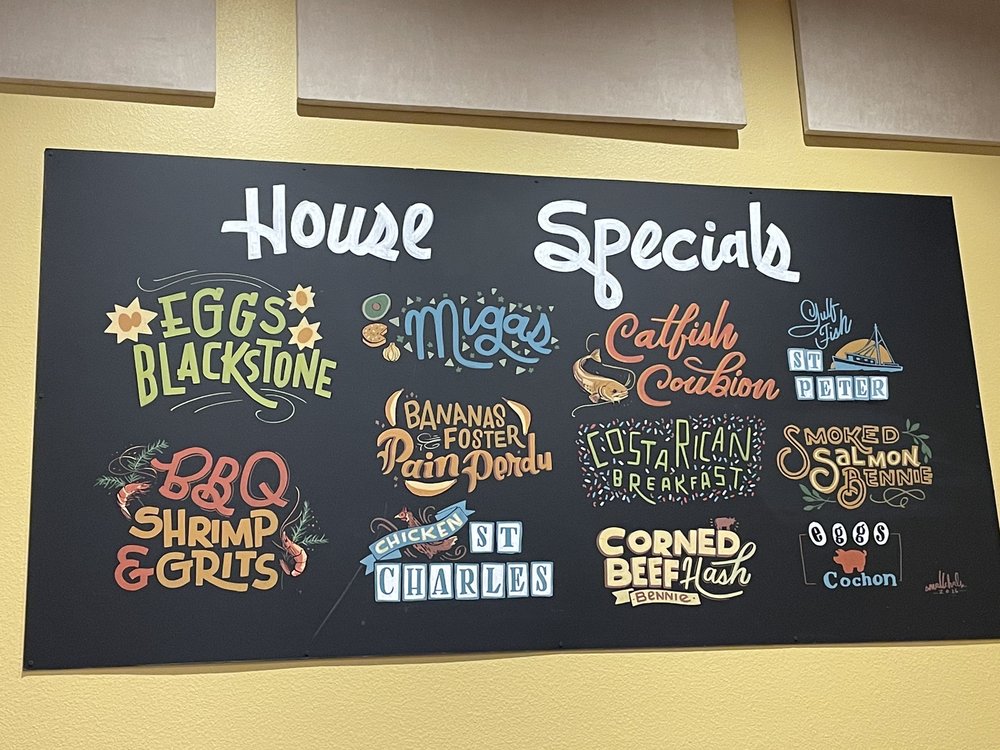 House Specials
EGGS
BLACKSTONE
Migas
Catfish
Coubion
Gulf
Fish
ST
PETER
BANANAS
FOSTER
Pain Perdu
COSTA RICAN
BREAKFAST
SMOKED
SALMON
BENNIE
BBQ
SHRIMP
& GRITS
CHICKEN ST
CHARLES
CORNED
BEEF Hash
BENNIE
eggs
Cochon
2016